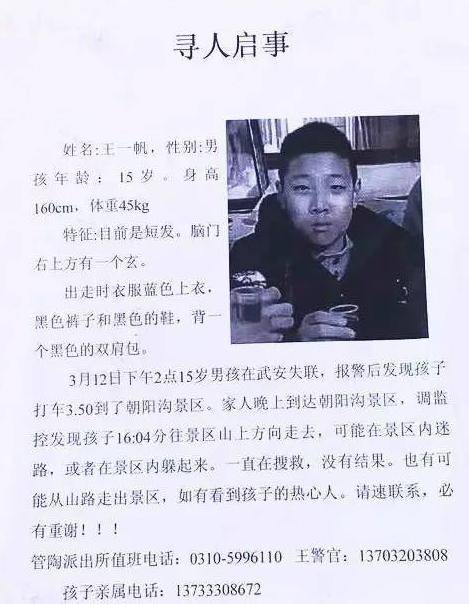 寻人启事
姓名:王一帆，性别:男
孩年龄：15岁。身高
160cm，体重45kg
特征:目前是短发。脑门
右上方有一个玄。
出走时衣服蓝色上衣，
黑色裤子和黑色的鞋，背一
个黑色的双肩包。
3月12日下午2点15岁男孩在武安失联，报警后发现孩子
打车3.50到了朝阳沟景区。家人晚上到达朝阳沟景区，调监
控发现孩子16:04分往景区山上方向走去，可能在景区内迷
路，或者在景区内躲起来。一直在搜救，没有结果。也有可
能从山路走出景区，如有看到孩子的热心人。请速联系，必
有重谢！！！
管陶派出所值班电话：0310-5996110 王警官：13703203808
孩子亲属电话：13733308672